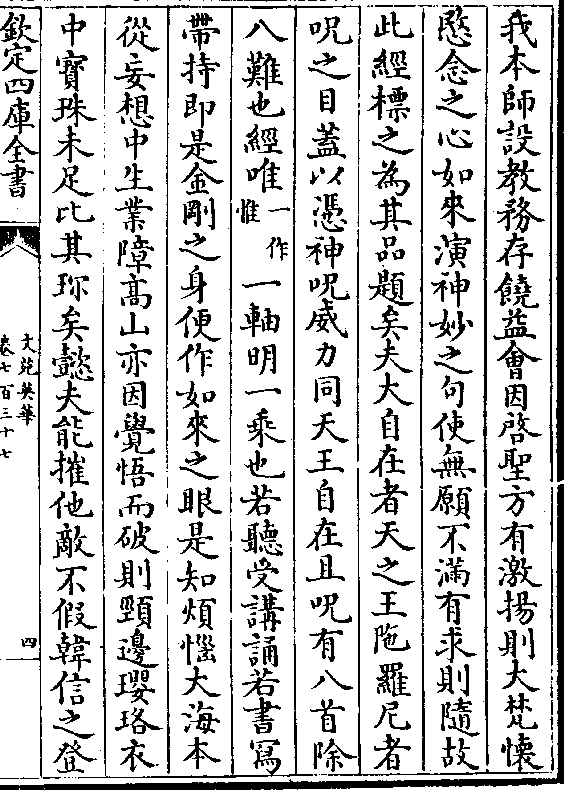 我本師設教務存饒益會因啓聖方有激揚則大梵懷
愍念之心如來演神妙之句使無願不滿有求則隨故
此經標之為其品題矣夫大自在者天之王陁羅尼者
呪之目蓋以憑神呪威力同天王自在且呪有八首除
八難也經唯一作惟一軸明一乘也若聽受講誦若書寫
帶持即是金剛之身便作如來之眼是知煩惱大海本
從妄想中生業障高山亦因覺悟而破則頸邊瓔珞衣
中寳珠未足比其珎矣懿夫能摧他敵不假韓信之登
欽定四庫全書
文苑英華
卷七百三十七
四